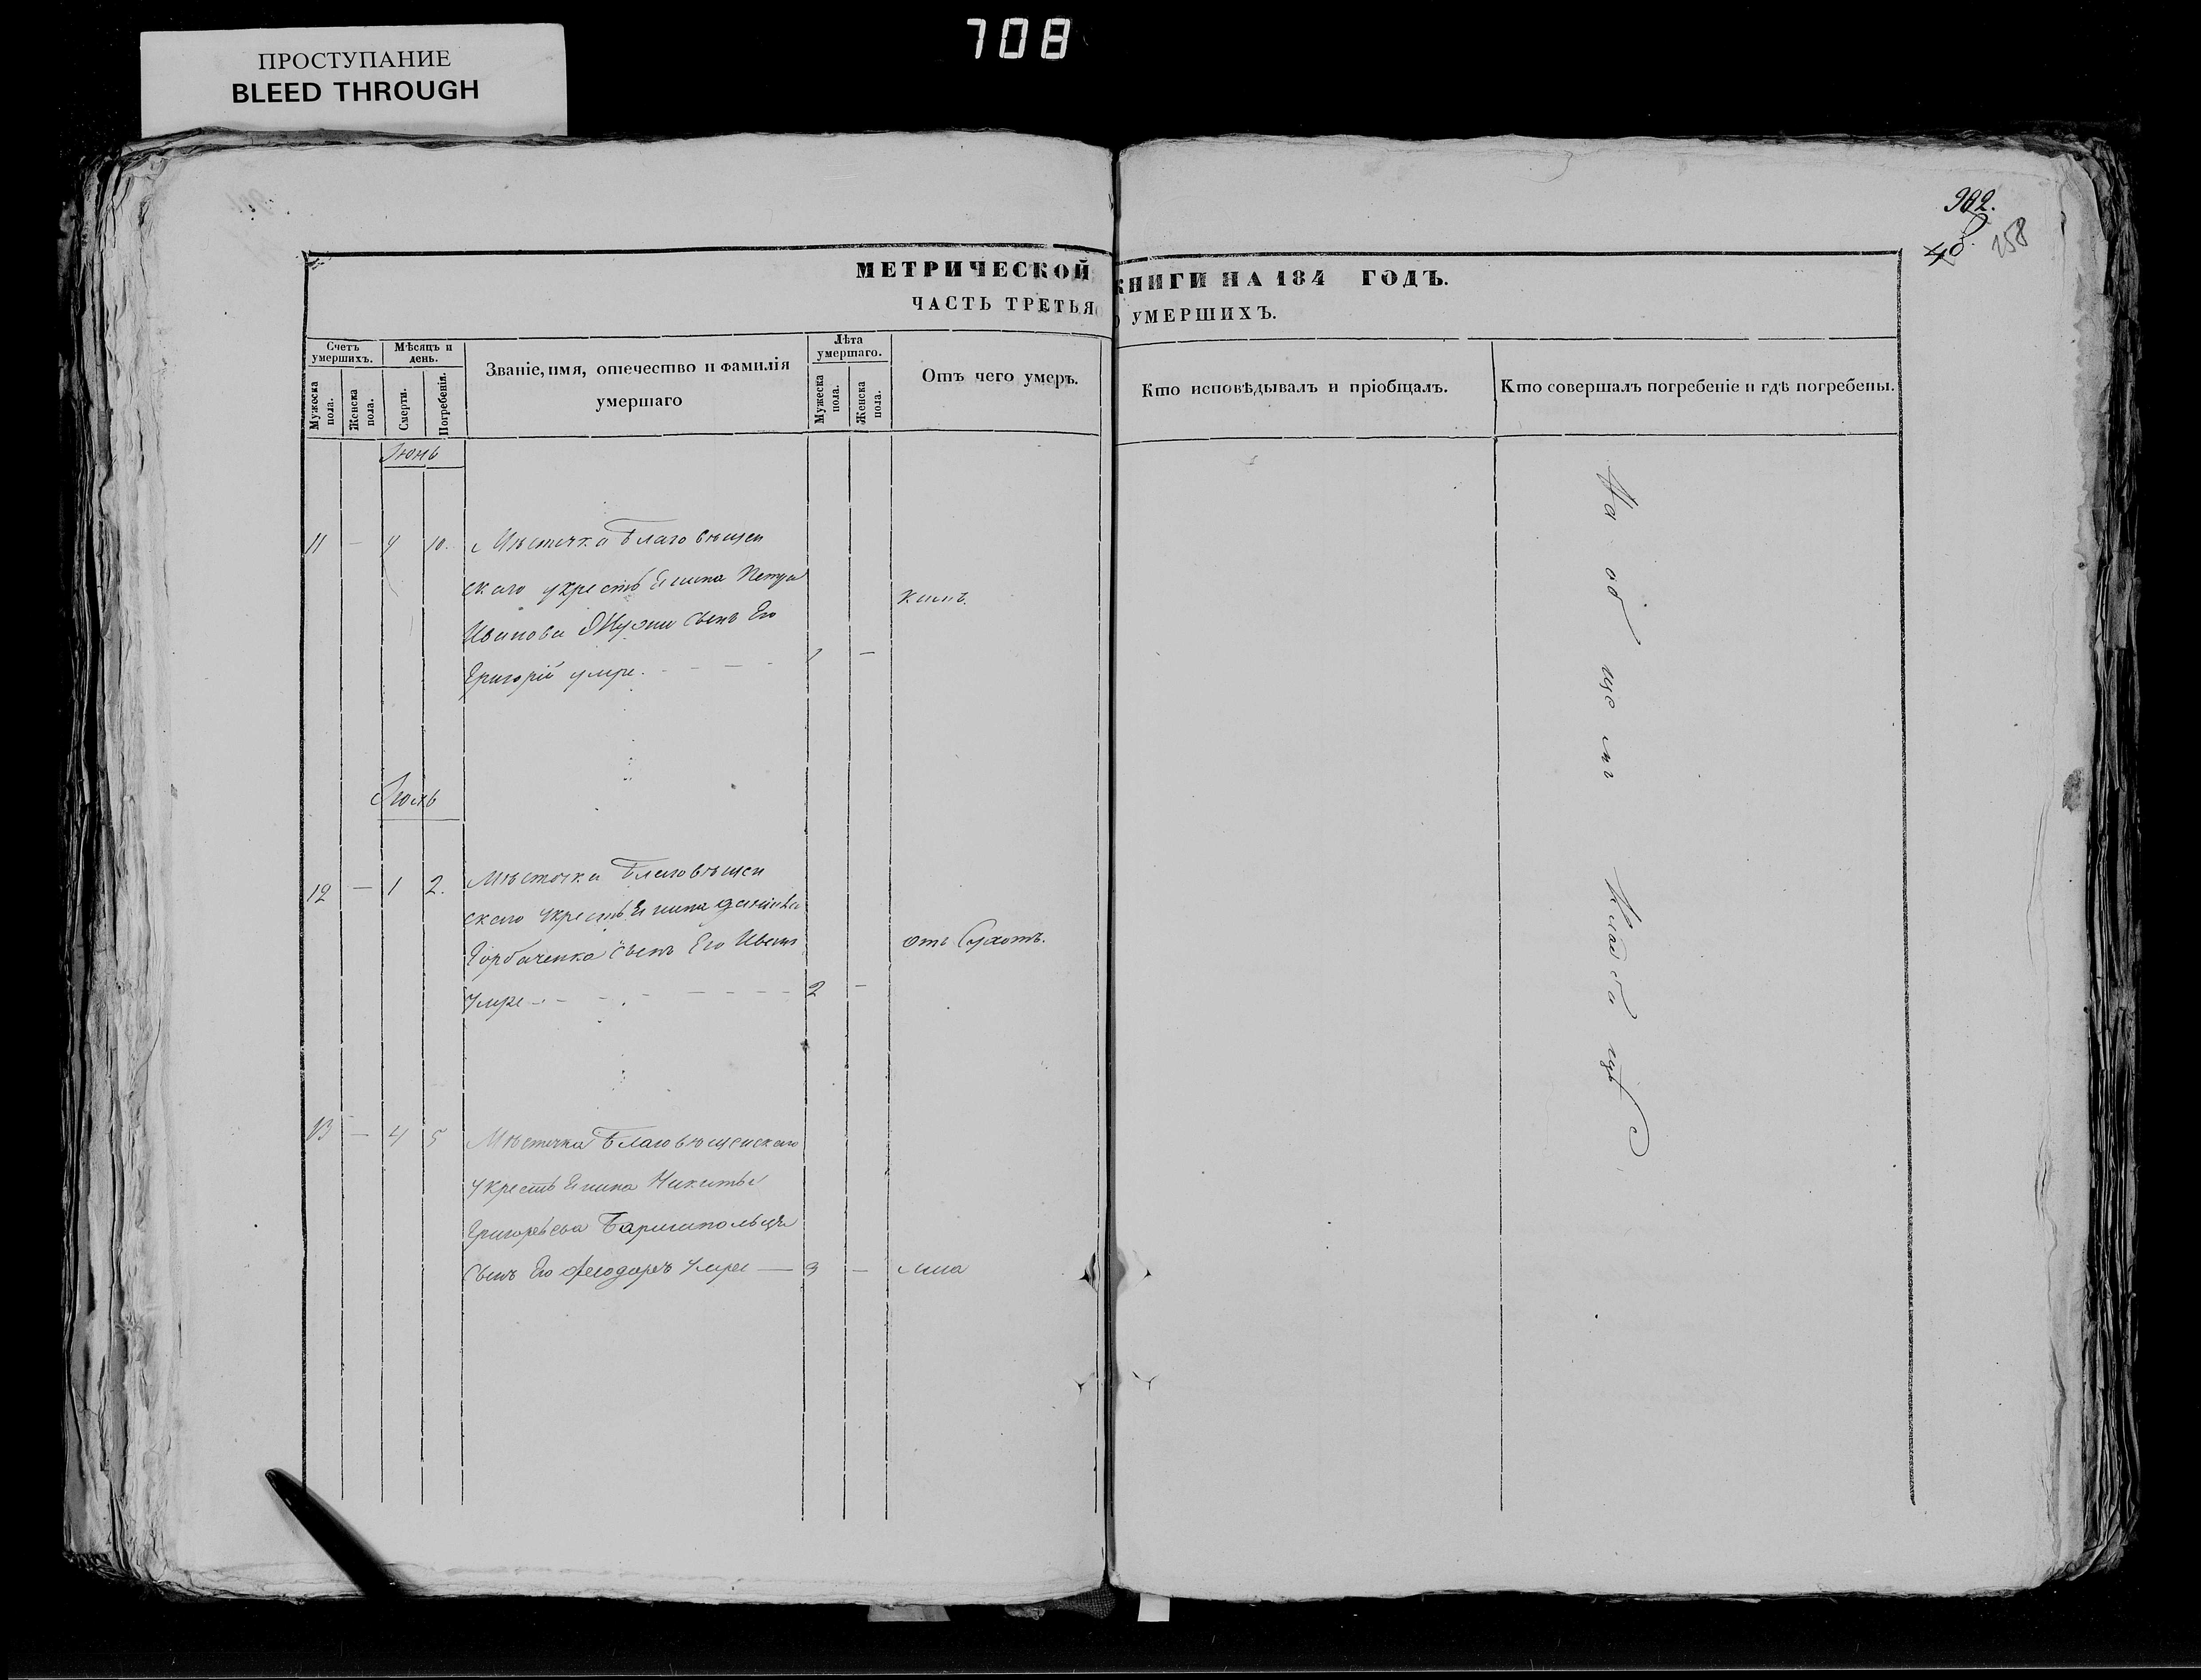 708
ПРОСТУПАНИЕ
BLEED THROUGH
982.
258
МЕТРИЧЕСКОЙ КНИГИ НА 184 ГОДЪ.
ЧАСТЬ ТРЕТЬЯ О УМЕРШИХЪ.
Счетъ умершихъ.
Мужеска пола.
Женска пола.
Мѣсяцъ и день.
Смерти.
Погребенія.
Званіе, имя, отечество и фамилія умершаго
Лѣта умершаго.
Мужеска пола.
Женска пола.
Отъ чего умеръ.
Кто исповѣдывалъ и пріобщалъ.
Кто совершалъ погребеніе и гдѣ погребены.
Іюнь
11 — 9 10. Мѣстечка Благовѣщен
скаго укрестьянина Петра
Иванова сынъ Его
Григорій умре. 1 —
Іюль
12 — 1 2. Мѣстечка Благовѣщен
скаго укрестьянина
Горбаченка сынъ Его Иванъ отъ Сухотъ.
умре 2 —
13 — 4 5 Мѣстечка Благовѣщенскаго
укрестьянина Никиты
Григорьева Баришпольца
сынъ Его Феодоръ умре — 3 —
На общемъ Кладбищѣ